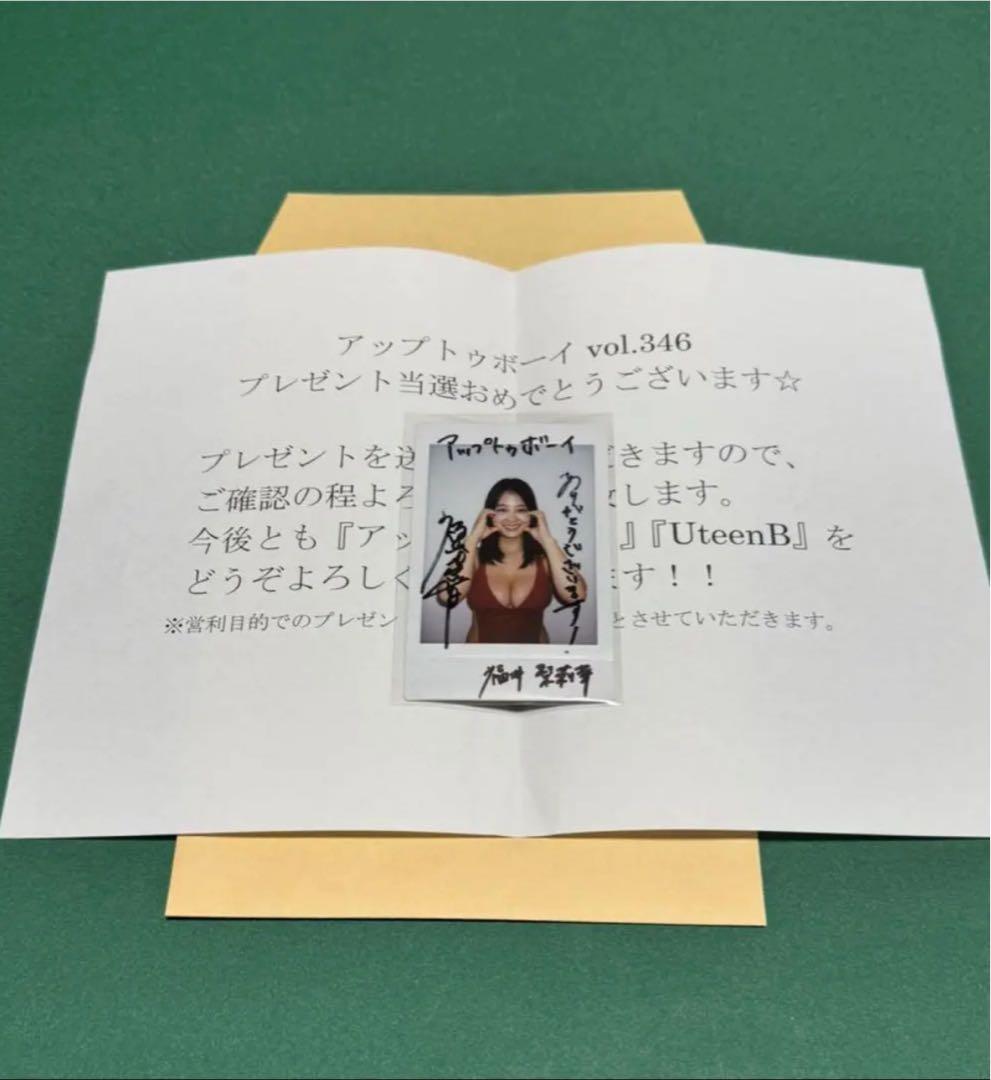 アップトゥボーイ vol.346
プレゼント当選おめでとうございます☆
プレゼントを送 だきますので、
ご確認の程よろ 致します。
今後とも『アッ 』『UteenB』を
どうぞよろしく ます！！
※営利目的でのプレゼン とさせていただきます。
アップトゥボーイ
ありがとうございます！
福井 梨莉華